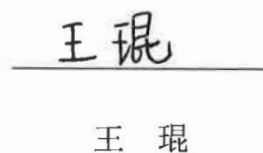 王琨
王 琨